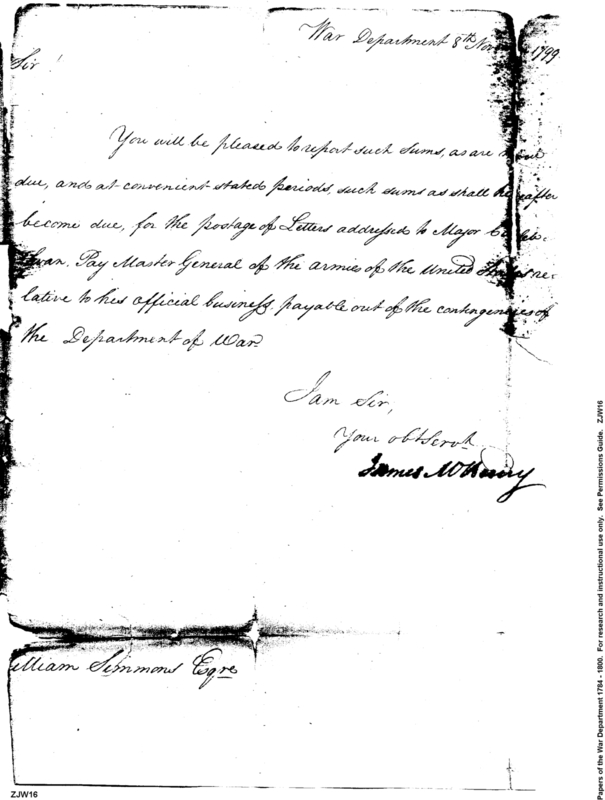 War Department 8th Nov 1799
Sir
You will be pleased to report such sums, as are now
due, and at convenient stated periods, such sums as shall hereafter
become due, for the postage of Letters addressed to Major Caleb
Swan. Pay Master General of the armies of the United States re-
lative to his official business, payable out of the contingencies of
the Department of War
I am Sir,
Your obt Servt
James McHenry
William Simmons Esqre
ZJW16
Papers of the War Department 1784 - 1800. For research and instructional use only. See Permissions Guide. ZJW16